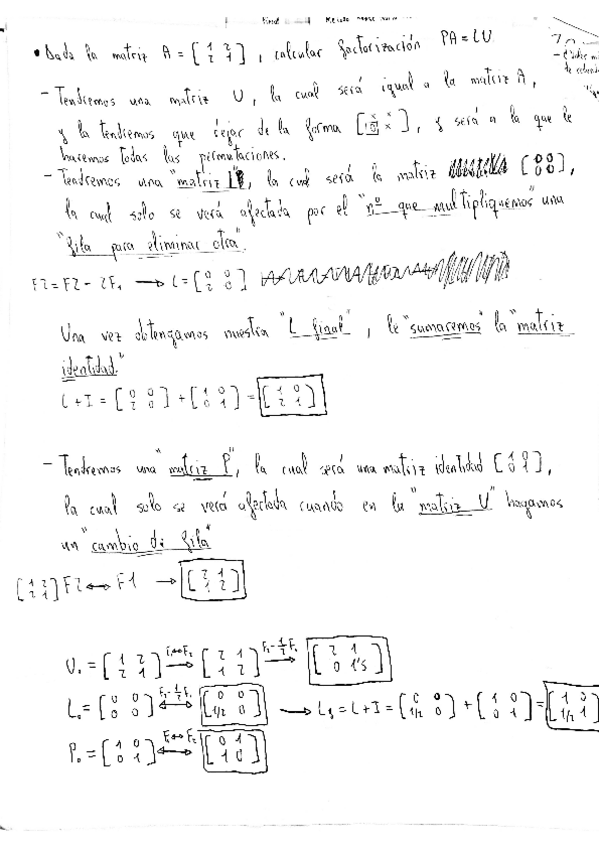 • Dada la matriz A = [1 2; 2 1], calcular factorización PA = LU
- Tendremos una matriz U, la cual será igual a la matriz A,
y la tendremos que dejar de la forma [x x; 0 x], y será a la que le
haremos todas las permutaciones.
- Tendremos una "matriz L", la cual será la matriz [0 0; 0 0],
la cual solo se verá afectada por el "nº que multipliquemos" una
"fila para eliminar otra".
F2 = F2 - 2F1 → L = [0 0; 2 0]
Una vez obtengamos nuestra "L final", le "sumaremos" la "matriz
identidad."
L + I = [0 0; 2 0] + [1 0; 0 1] = [1 0; 2 1]
- Tendremos una "matriz P", la cual será una matriz identidad [1 0; 0 1],
la cual solo se verá afectada cuando en la "matriz U" hagamos
un "cambio de fila"
[1 2; 2 1] F2 ↔ F1 → [2 1; 1 2]
U₀ = [1 2; 2 1] F1↔F2 → [2 1; 1 2] F2-1/2F1 → [2 1; 0 1'5]
L₀ = [0 0; 0 0] F2-1/2F1 ↔ [0 0; 1/2 0] → Lf = L + I = [0 0; 1/2 0] + [1 0; 0 1] = [1 0; 1/2 1]
P₀ = [1 0; 0 1] F1↔F2 ↔ [0 1; 1 0]